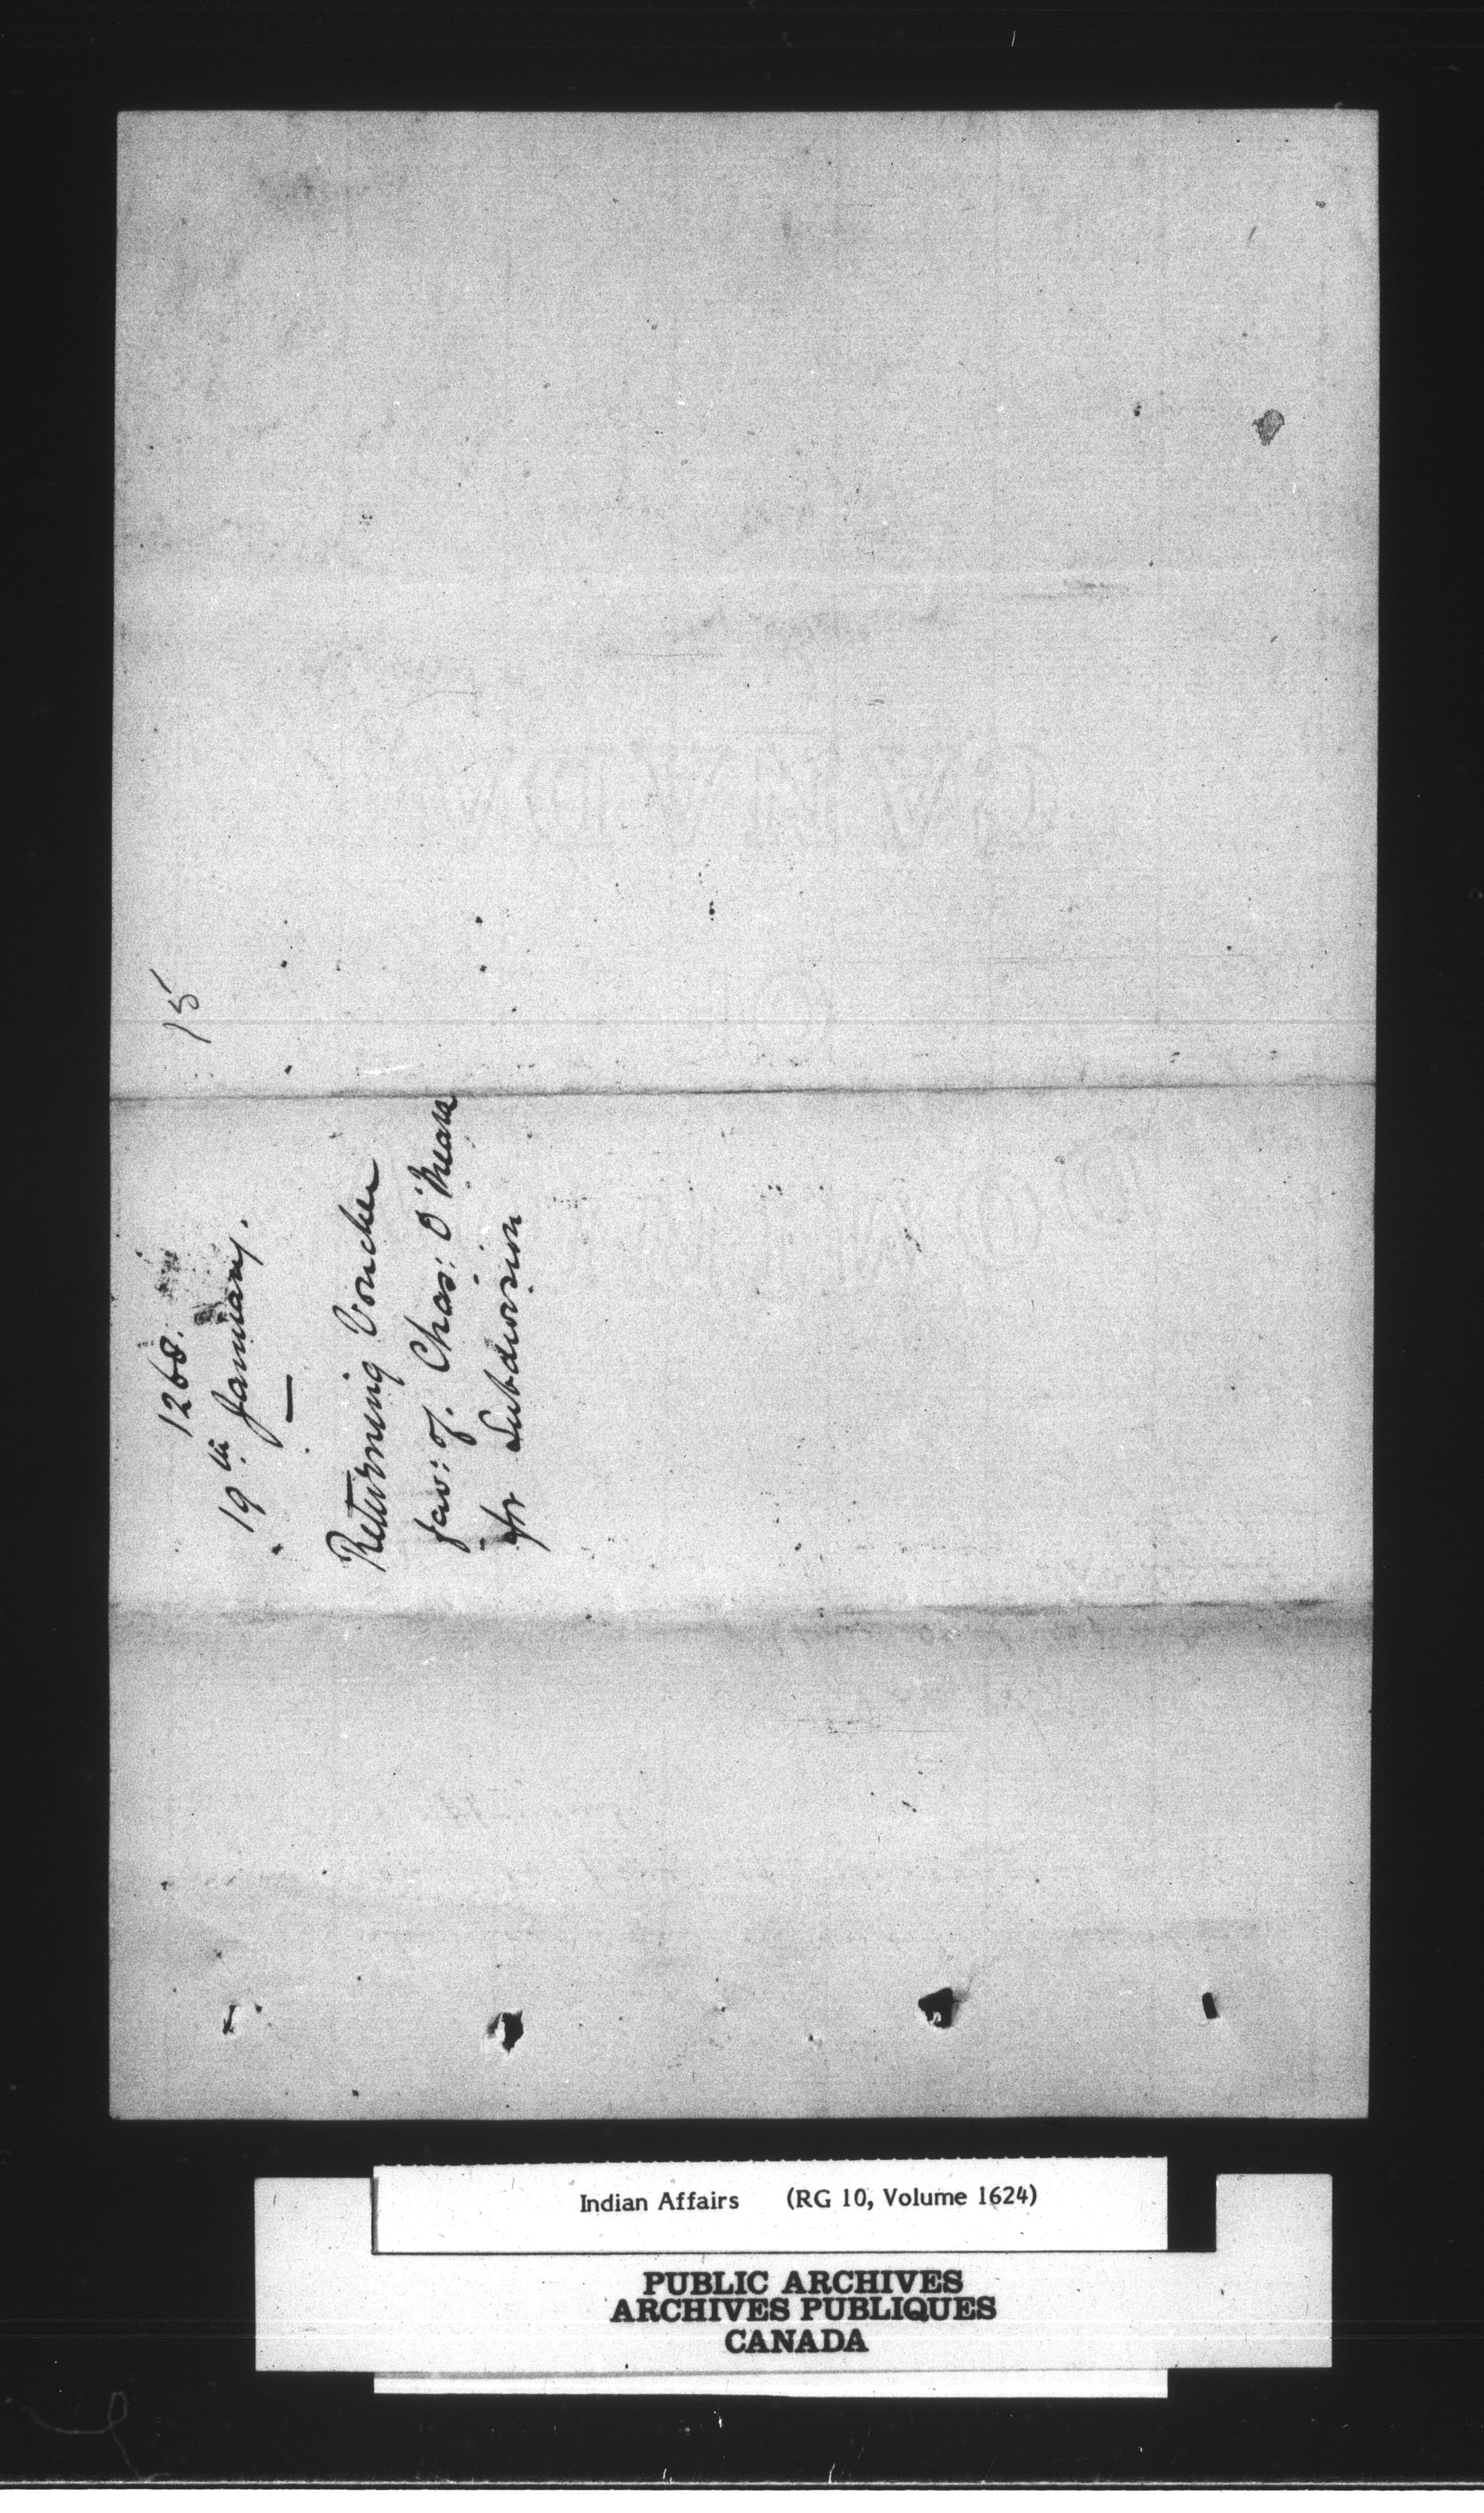 15
1268.
19th January.
Returning Voucher
fav: of. Chas: O'Meara
for Subdivision
Indian Affairs (RG 10, Volume 1624)
PUBLIC ARCHIVES
ARCHIVES PUBLIQUES
CANADA